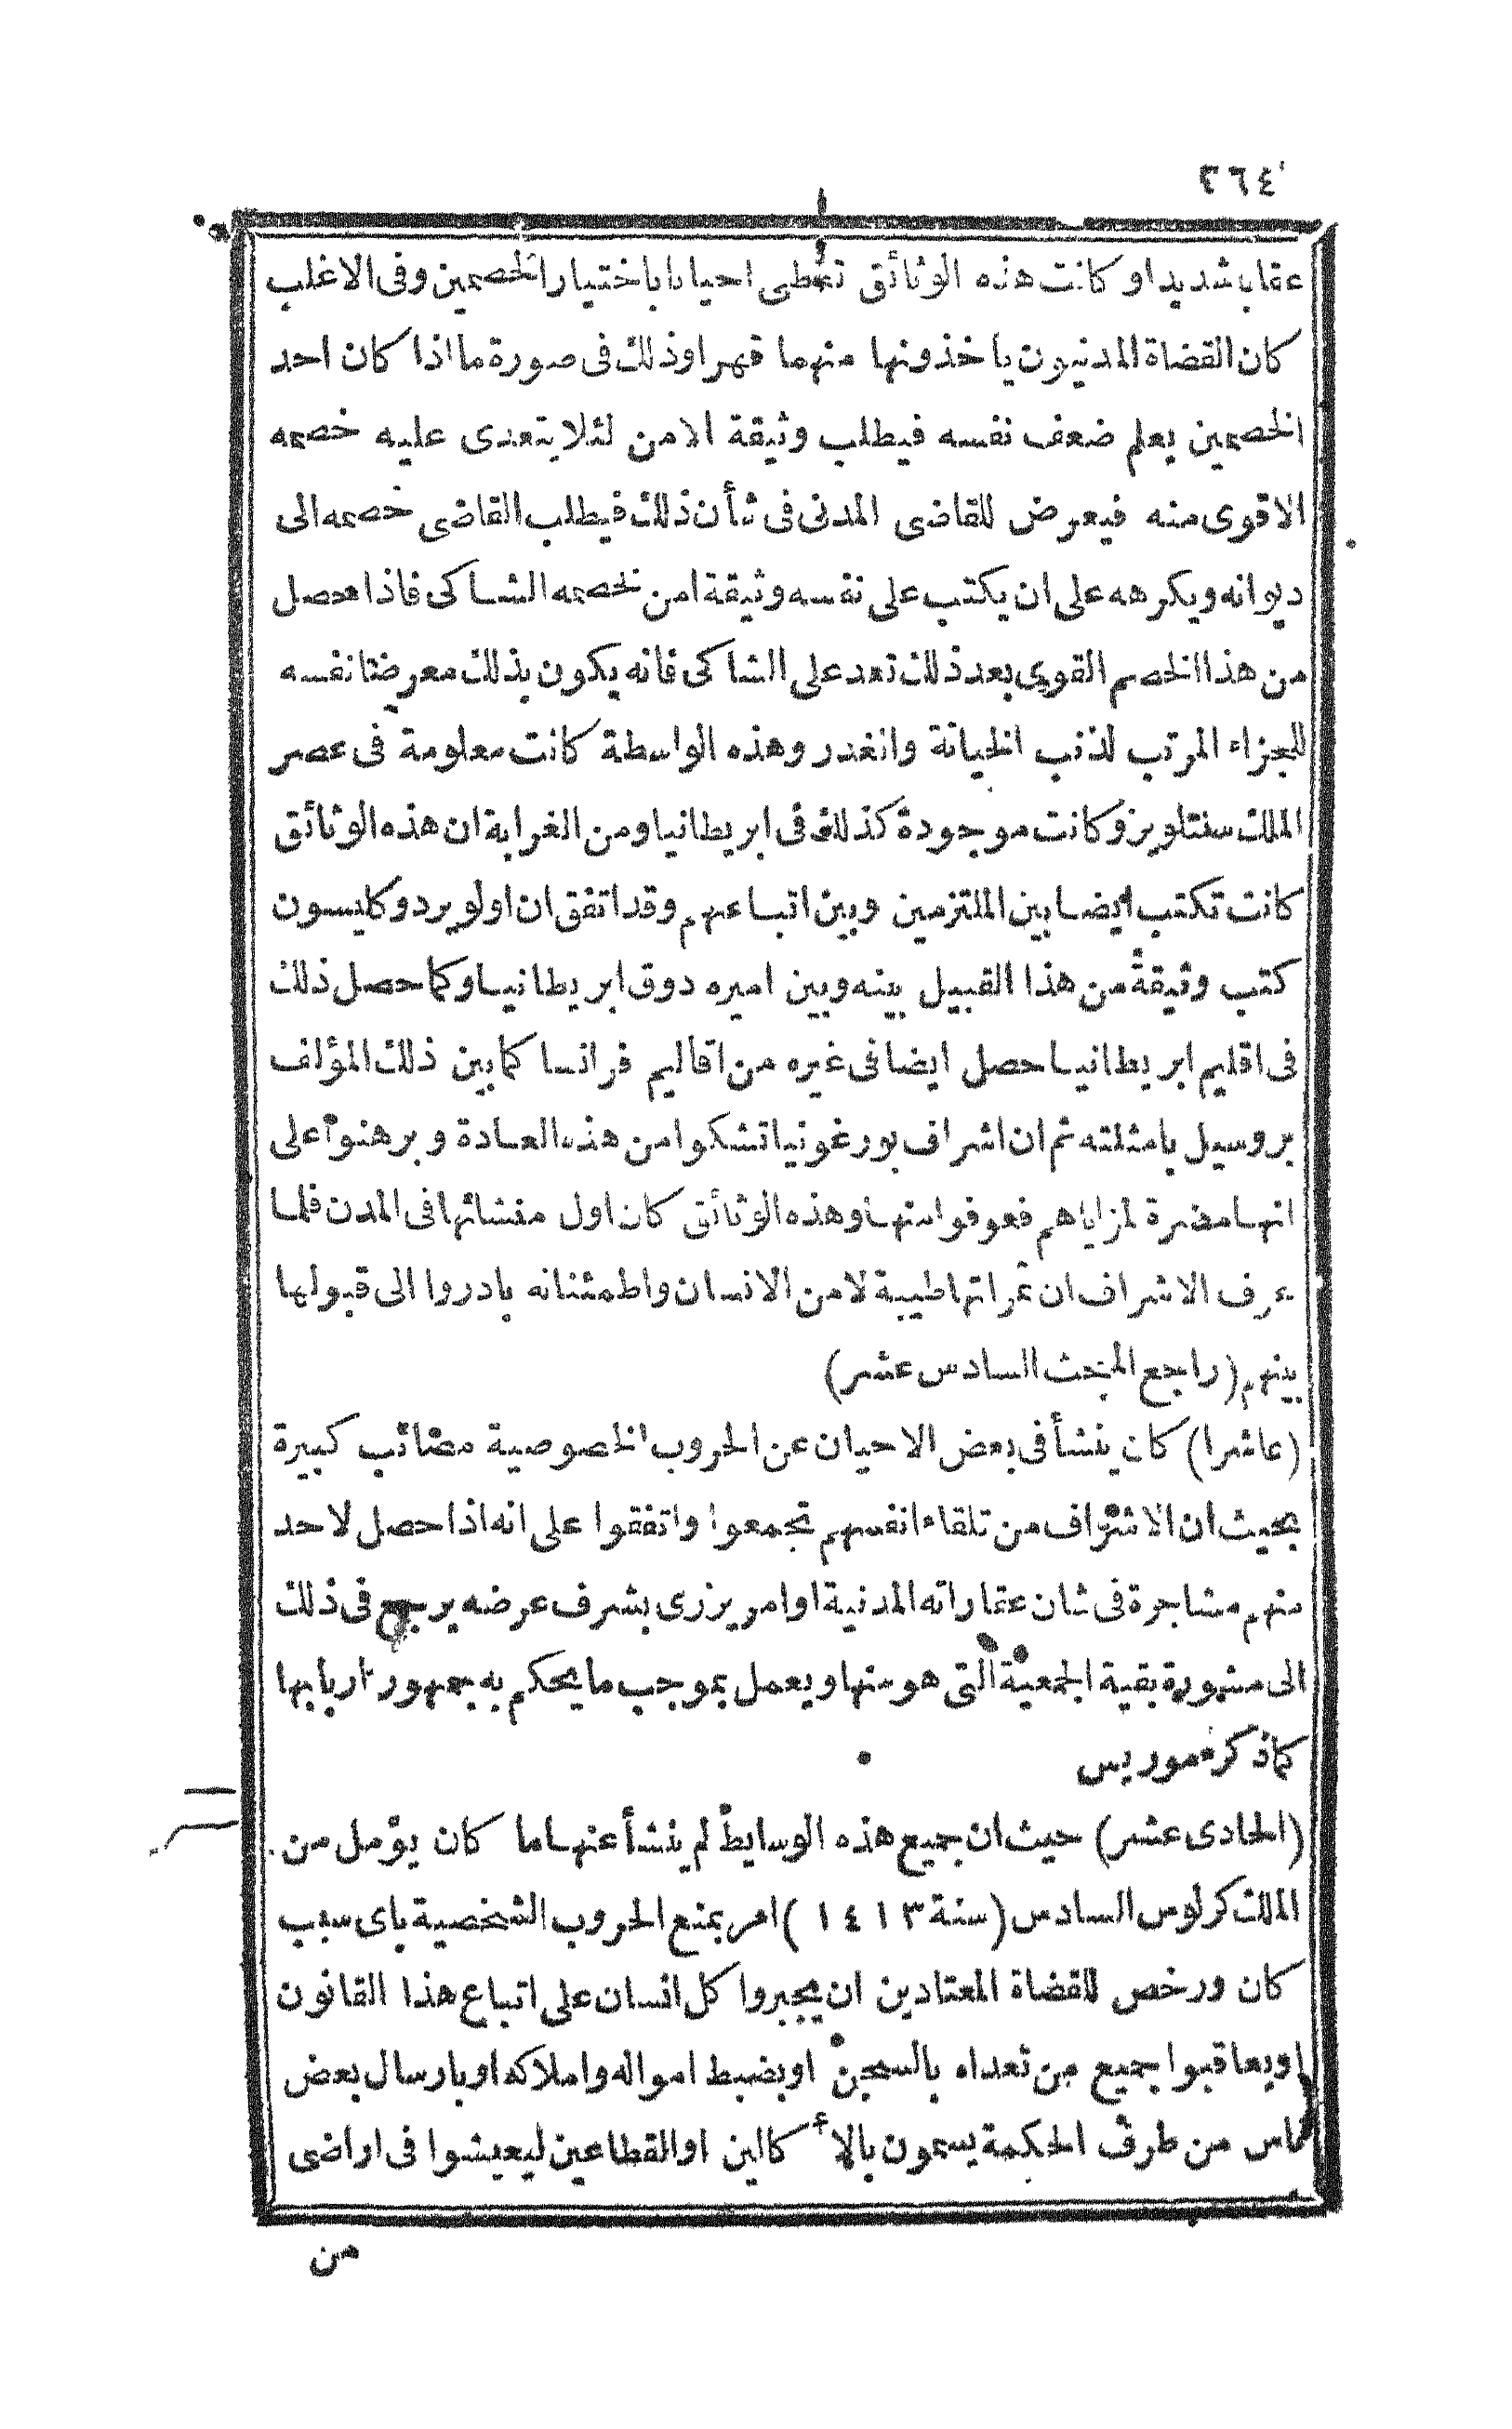 ٢٦٤
عقابا شديدا وكانت هذه الوثائق تعطى احيانا باختيار الخصمين وفى الاغلب
كان القضاة المدنيون ياخذونها منهما قهرا وذلك فى صورة ما اذا كان احد
الخصمين يعلم ضعف نفسه فيطلب وثيقة الامن لئلا يتعدى عليه خصمه
الاقوى منه فيعرض للقاضى المدنى فى شأن ذلك فيطلب القاضى خصمه الى
ديوانه ويكرهه على ان يكتب على نفسه وثيقة امن لخصمه الشاكى فاذا حصل
من هذا الخصم القوى بعد ذلك تعد على الشاكى فانه يكون بذلك معرضا نفسه
للجزاء المرتب لذنب الخيانة والغدر وهذه الواسطة كانت معلومة فى عصر
الملك سنتلويز وكانت موجودة كذلك فى ابريطانيا ومن الغرابة ان هذه الوثائق
كانت تكتب ايضا بين الملتزمين وبين اتباعهم وقد اتفق ان اولويردو كليسون
كتب وثيقة من هذا القبيل بينه وبين اميره دوق ابريطانيا وكما حصل ذلك
فى اقليم ابريطانيا حصل ايضا فى غيره من اقاليم فرانسا كما بين ذلك المؤلف
بروسيل بامثلته ثم ان اشراف بورغونيا تشكوا من هذه العادة وبرهنوا على
انها مضرة لمزاياهم فعوفوا منها وهذه الوثائق كان اول منشائها فى المدن فلما
عرف الاشراف ان ثمراتها طيبة لامن الانسان واطمئنانه بادروا الى قبولها
بينهم (راجع المبحث السادس عشر)
(عاشرا) كان ينشأ فى بعض الاحيان عن الحروب الخصوصية مصائب كبيرة
بحيث ان الاشراف من تلقاء انفسهم تجمعوا واتفقوا على انه اذا حصل لاحد
منهم مشاجرة فى شان عقاراته المدنية او امر يزرى بشرف عرضه يرجع فى ذلك
الى مشورة بقية الجمعية التى هو منها ويعمل بموجب ما يحكم به جمهور اربابها
كما ذكره موريس
(الحادى عشر) حيث ان جميع هذه الوسايط لم ينشأ عنها ما كان يؤمل من
الملك كرلوس السادس (سنة ١٤١٣) امر بمنع الحروب الشخصية باى سبب
كان ورخص للقضاة المعتادين ان يجبروا كل انسان على اتباع هذا القانون
ويعاقبوا جميع من تعداه بالسجن او بضبط امواله واملاكه او بارسال بعض
ناس من طرف الحكمة يسمون بالأكالين او القطاعين ليعيشوا فى اراضى
من